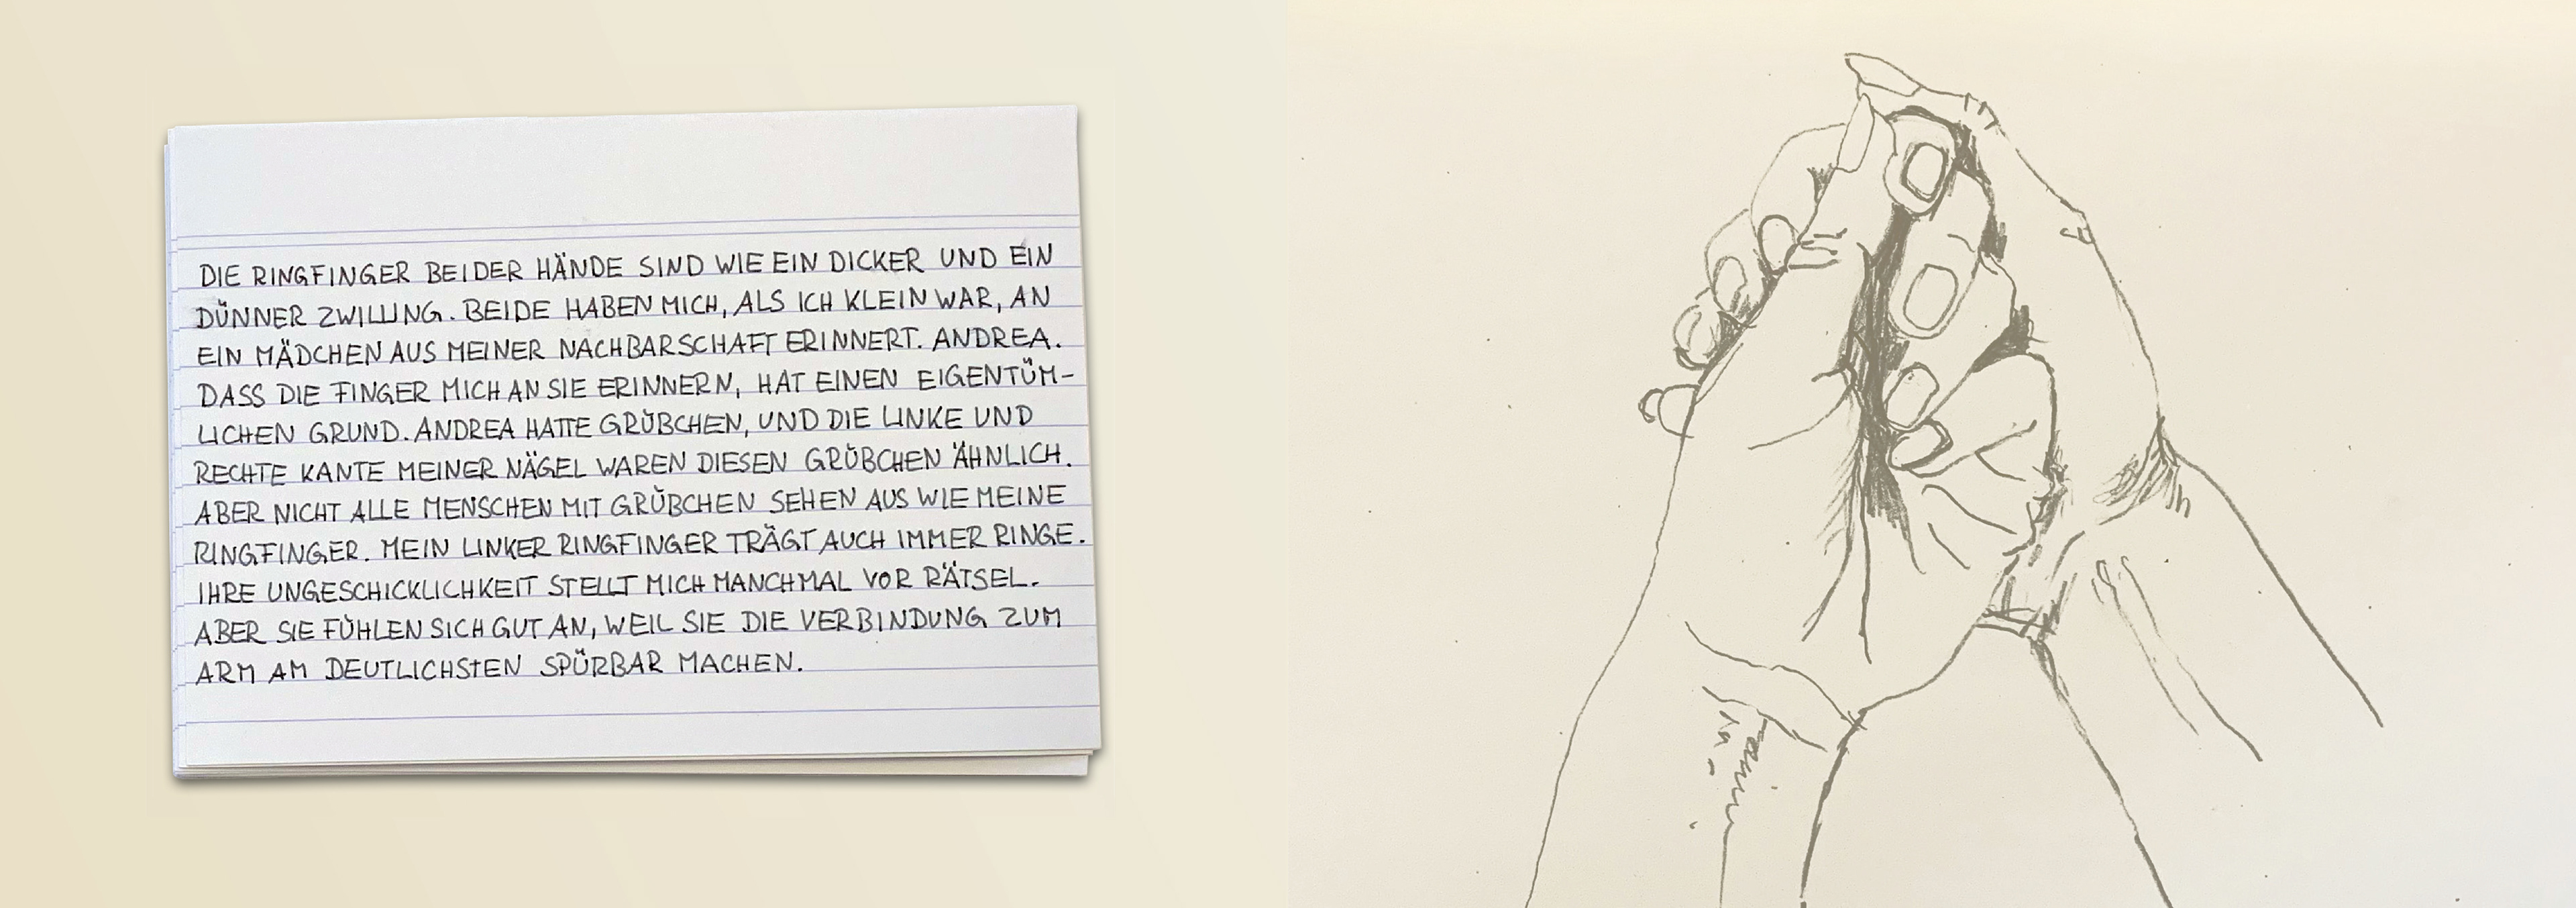 DIE RINGFINGER BEIDER HÄNDE SIND WIE EIN DICKER UND EIN
DÜNNER ZWILLING. BEIDE HABEN MICH, ALS ICH KLEIN WAR, AN
EIN MÄDCHEN AUS MEINER NACHBARSCHAFT ERINNERT. ANDREA.
DASS DIE FINGER MICH AN SIE ERINNERN, HAT EINEN EIGENTÜM-
LICHEN GRUND. ANDREA HATTE GRÜBCHEN, UND DIE LINKE UND
RECHTE KANTE MEINER NÄGEL WAREN DIESEN GRÜBCHEN ÄHNLICH.
ABER NICHT ALLE MENSCHEN MIT GRÜBCHEN SEHEN AUS WIE MEINE
RINGFINGER. MEIN LINKER RINGFINGER TRÄGT AUCH IMMER RINGE.
IHRE UNGESCHICKLICHKEIT STELLT MICH MANCHMAL VOR RÄTSEL.
ABER SIE FÜHLEN SICH GUT AN, WEIL SIE DIE VERBINDUNG ZUM
ARM AM DEUTLICHSTEN SPÜRBAR MACHEN.